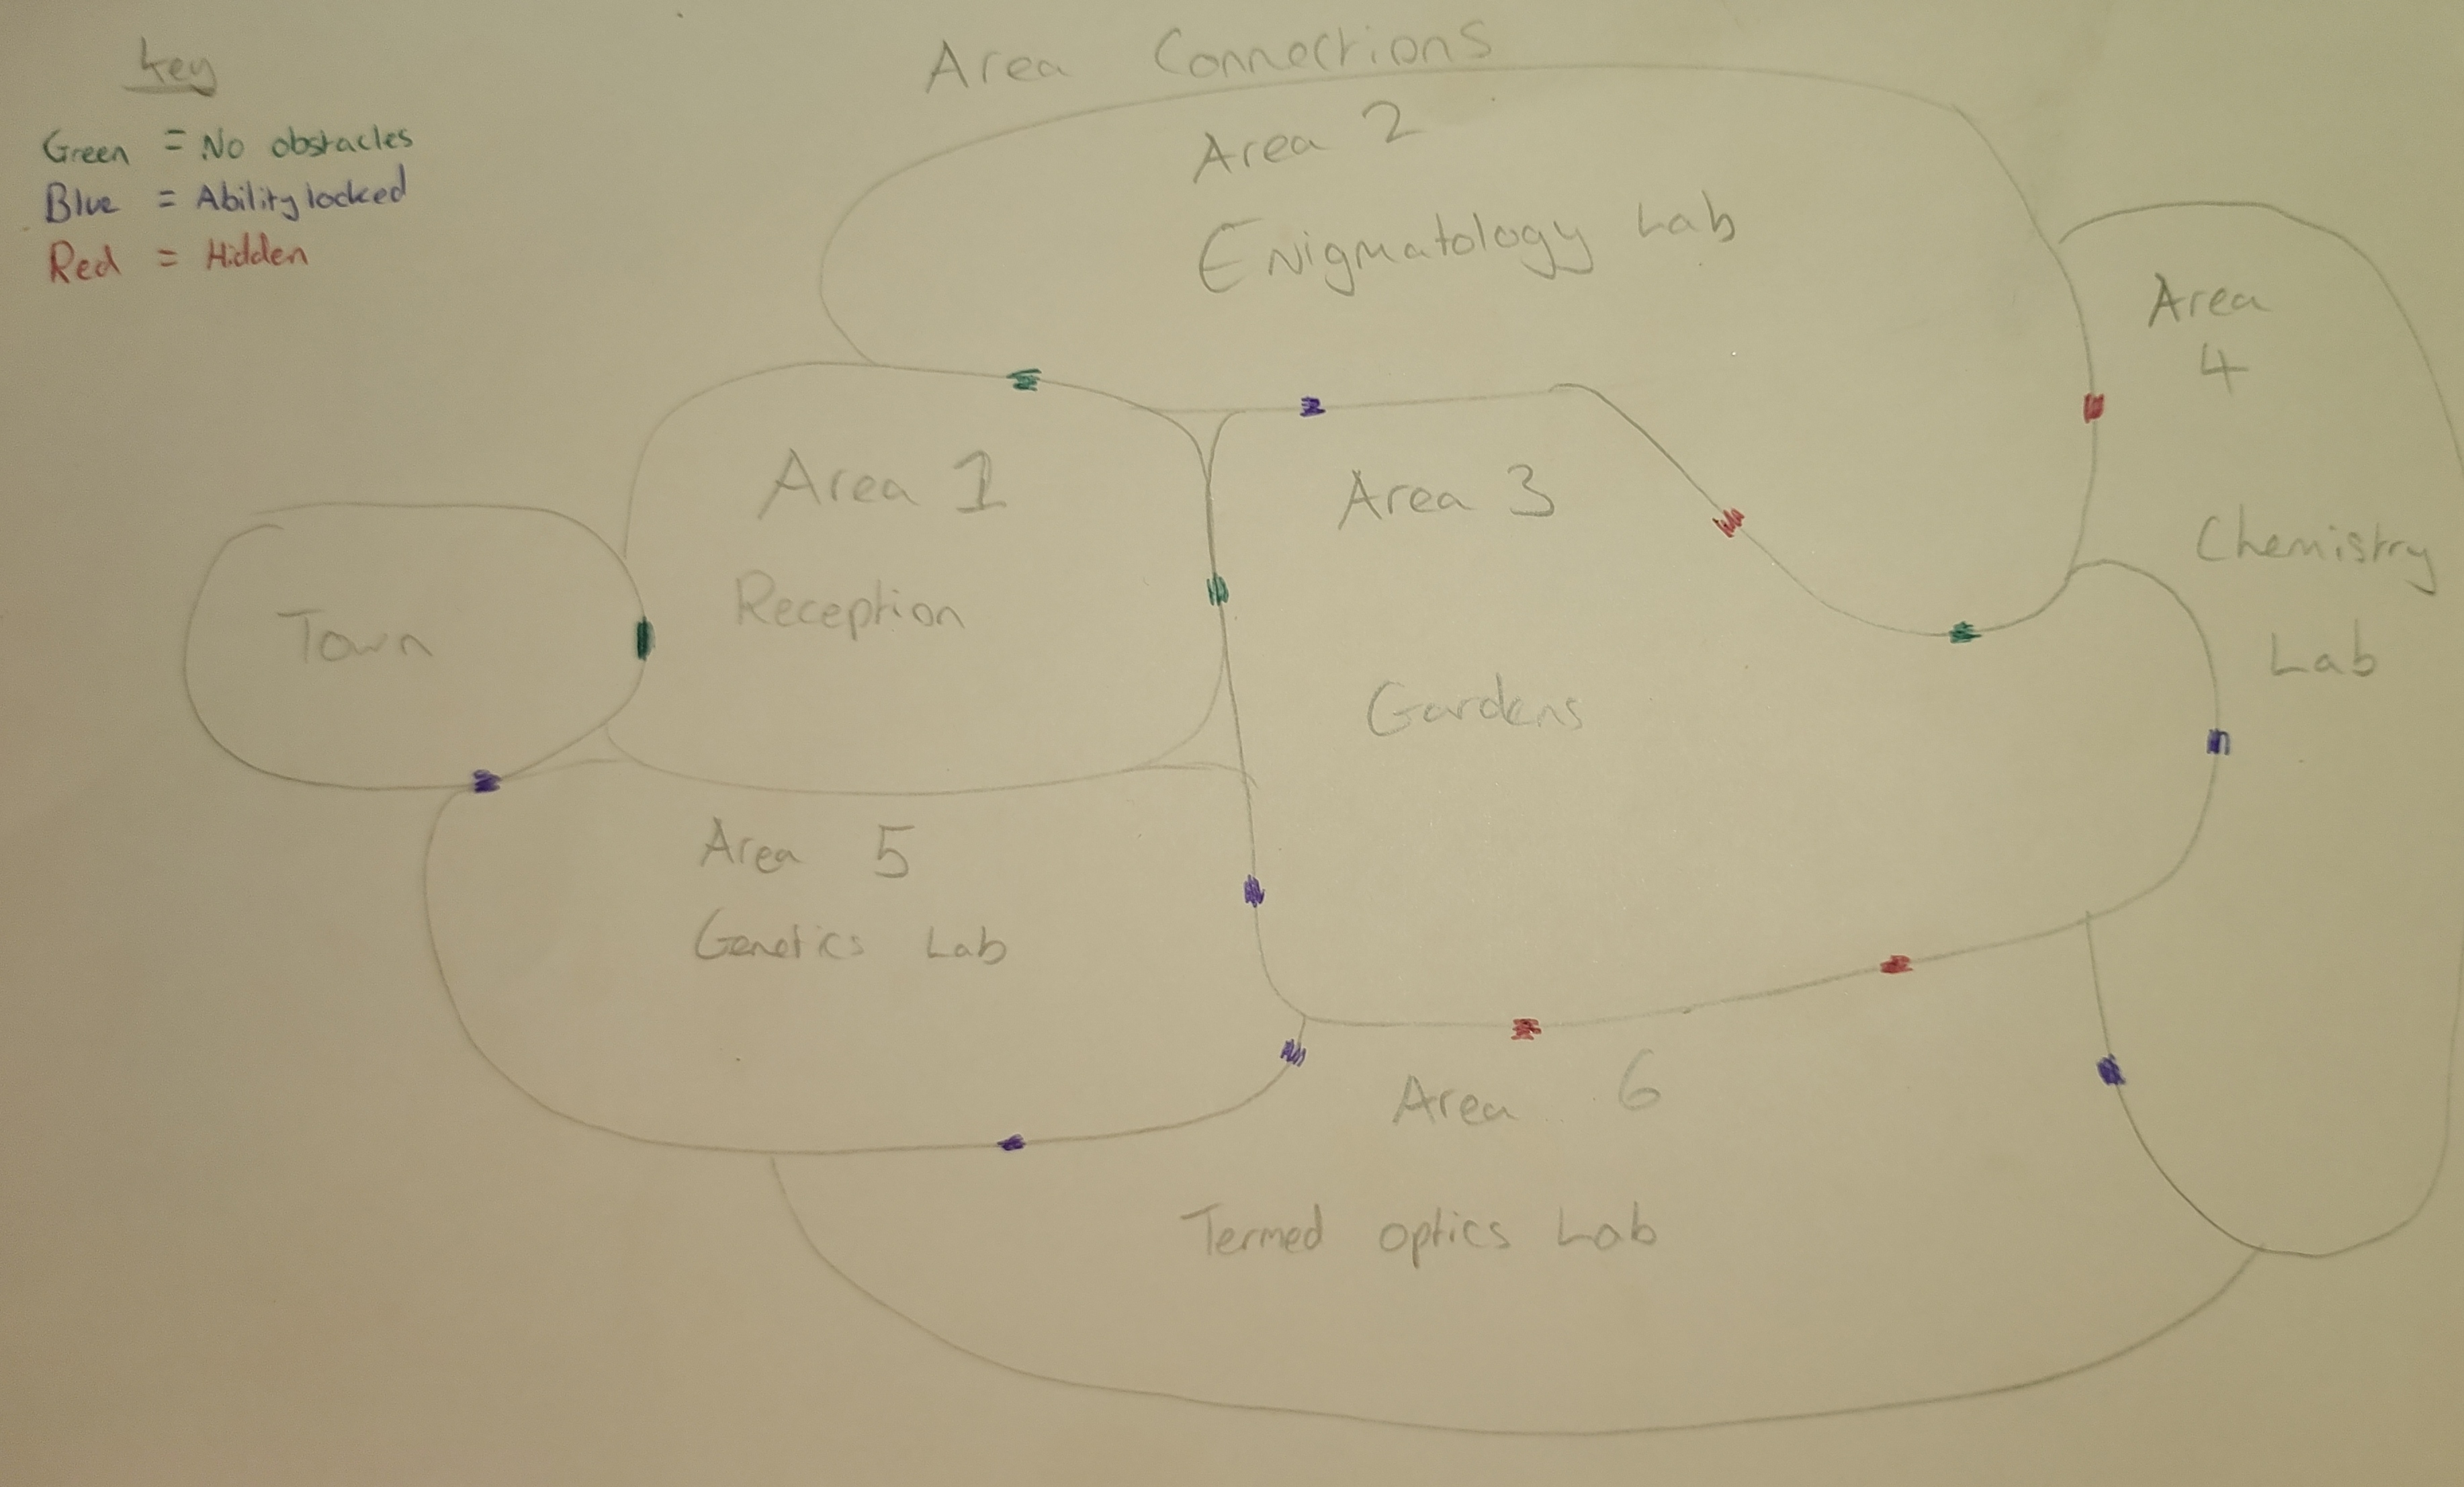 Area Connections
Key
Green = No obstacles
Blue = Ability locked
Red = Hidden
Area 2
Enigmatology Lab
Area
4
Chemistry
Lab
Area 1
Reception
Area 3
Gardens
Town
Area 5
Genetics Lab
Area 6
Termed optics Lab